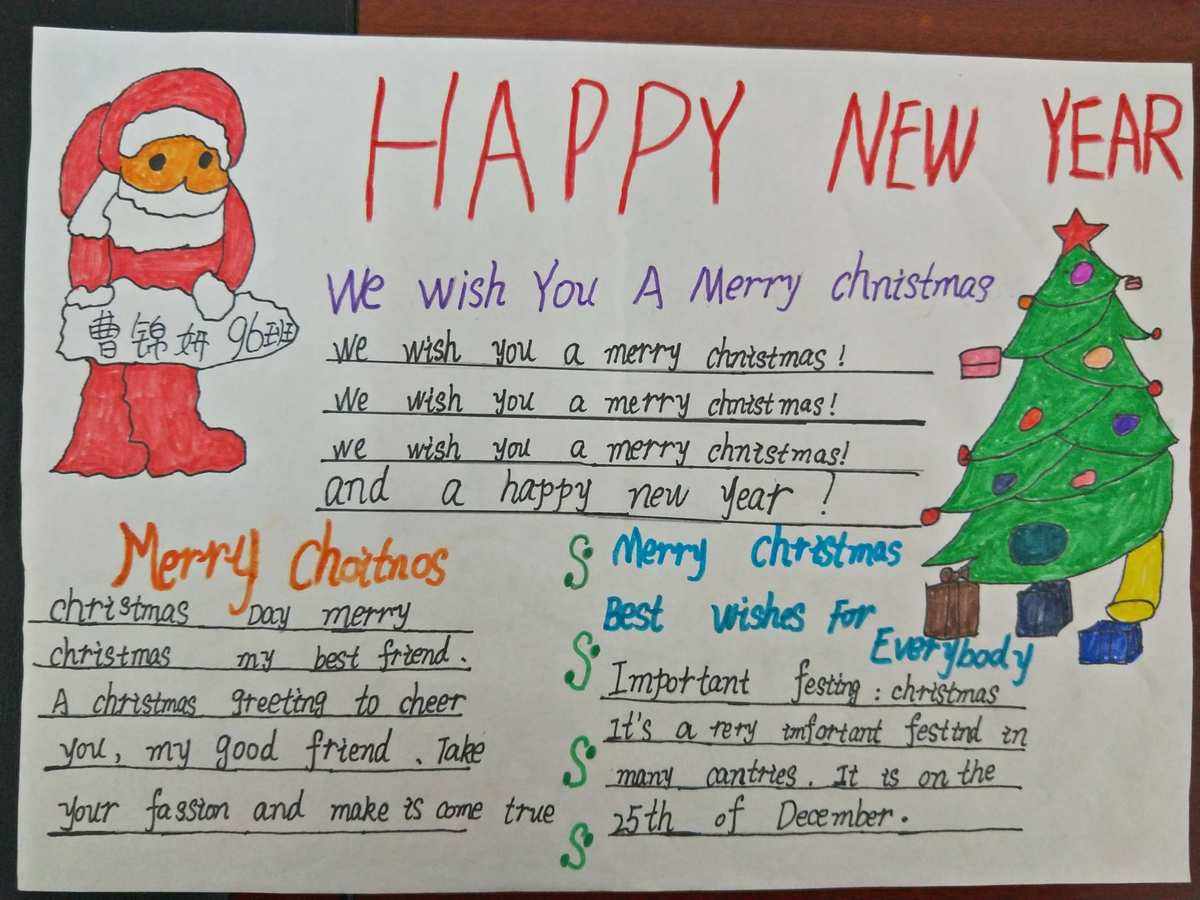 HAPPY NEW YEAR
We wish You A Merry christmas
we wish you a merry christmas!
We wish you a merry christmas!
we wish you a merry christmas!
and a happy new year!
曹锦妍 96班
Merry Choitnos
christmas Day merry
christmas my best friend.
A christmas greeting to cheer
you, my good friend. Take
your fassion and make is come true
Merry christmas
Best wishes For
Everybody
Important festing: christmas
It's a rery imfortant festind in
many cantries. It is on the
25th of December.